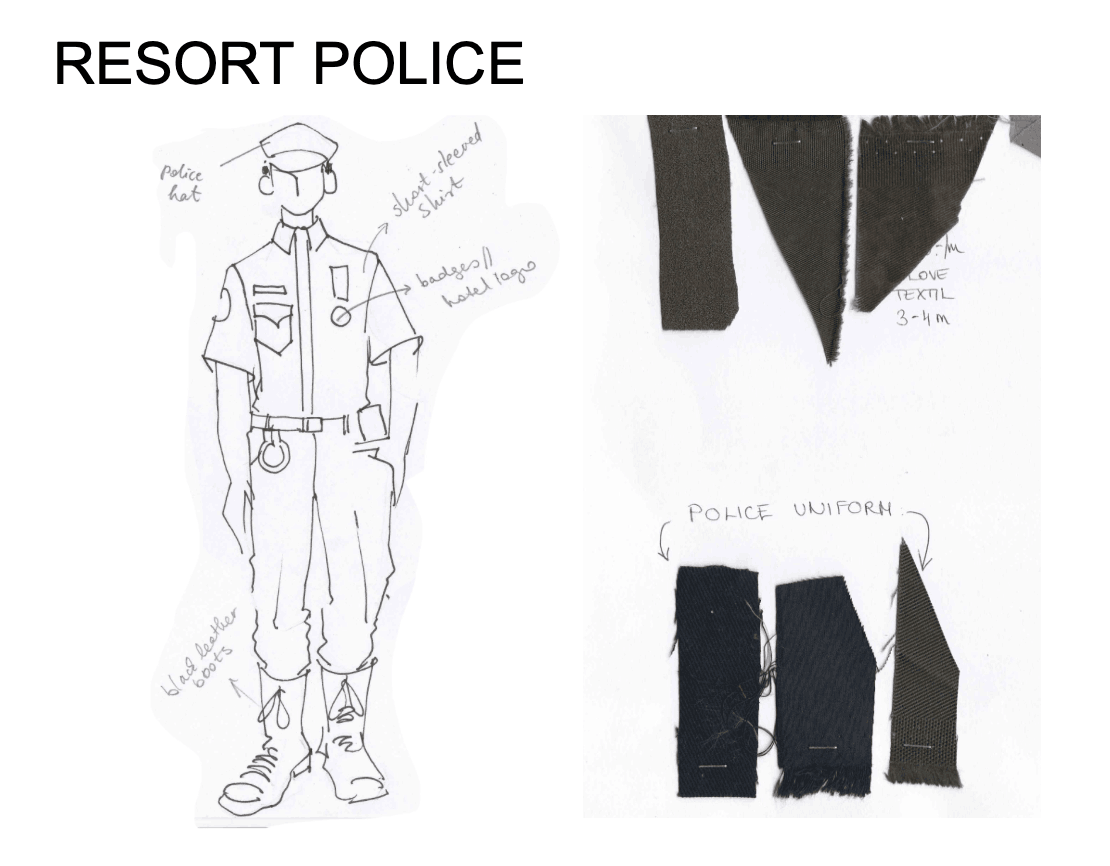 RESORT POLICE
Police
hat
short-sleeved
shirt
badges//
hotel logo
black leather
boots
-/m
LOVE
TEXTIL
3-4 m
POLICE UNIFORM